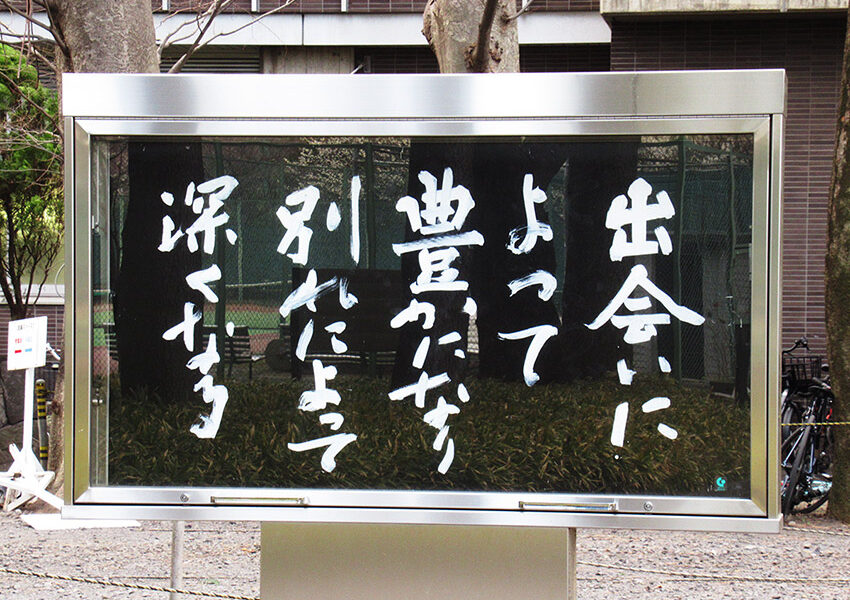 出会いに
よって
豊かになり
別れによって
深くなる